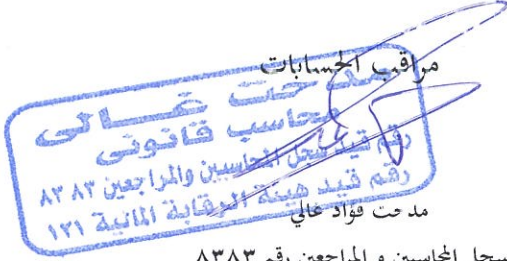 مراقب الحسابات
مدحت غالى
محاسب قانونى
رقم قيد سجل المحاسبين والمراجعين ٨٣٨٣
رقم قيد هيئة الرقابة المالية ١٢١
مدحت فؤاد غالي
سجل المحاسبين و المراجعين رقم ٨٣٨٣